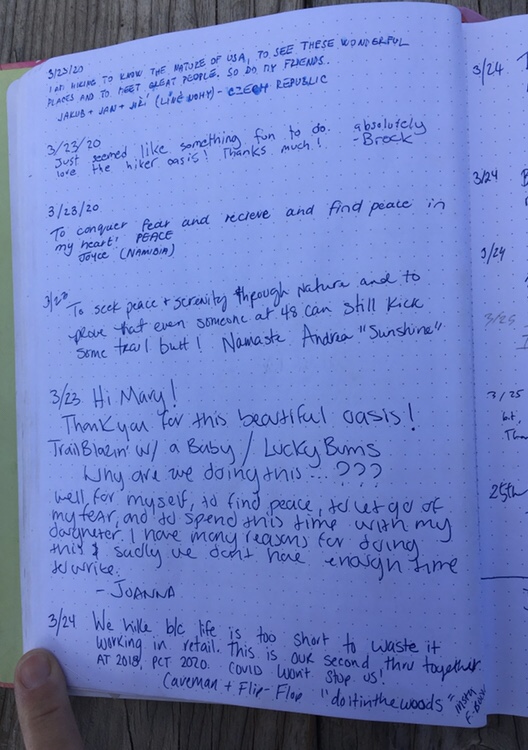 3/23/20
I AM HIKING TO KNOW THE NATURE OF USA, TO SEE THESE WONDERFUL
PLACES AND TO MEET GREAT PEOPLE. SO DO MY FRIENDS.
JAKUB + JAN + JIŘÍ - CZECH REPUBLIC
3/23/20
Just seemed like something fun to do. absolutely
love the hiker oasis! Thanks much! -Brock
3/23/20
To conquer fear and recieve and find peace in
my heart! PEACE
Joyce (NAMIBIA)
To seek peace + serenity through Nature and to
prove that even someone at 48 can still kick
some trail butt! Namaste Andrea "Sunshine"
3/23 Hi Mary!
Thank you for this beautiful oasis!
TrailBlazin' w/ a Baby / Lucky Bums
Why are we doing this...???
well, for myself, to find peace, to let go of
my fear, and to spend this time with my
daughter. I have many reasons for doing
this & sadly we dont have enough time
to write.
- JOANNA
3/24 We hike b/c life is too short to waste it
working in retail. This is our second thru together.
AT 2018, PCT 2020. COVID won't stop us!
Caveman + Flip-Flop "doitinthewoods" insta
3/24
3/24
3/24
3/25
3/25
25th